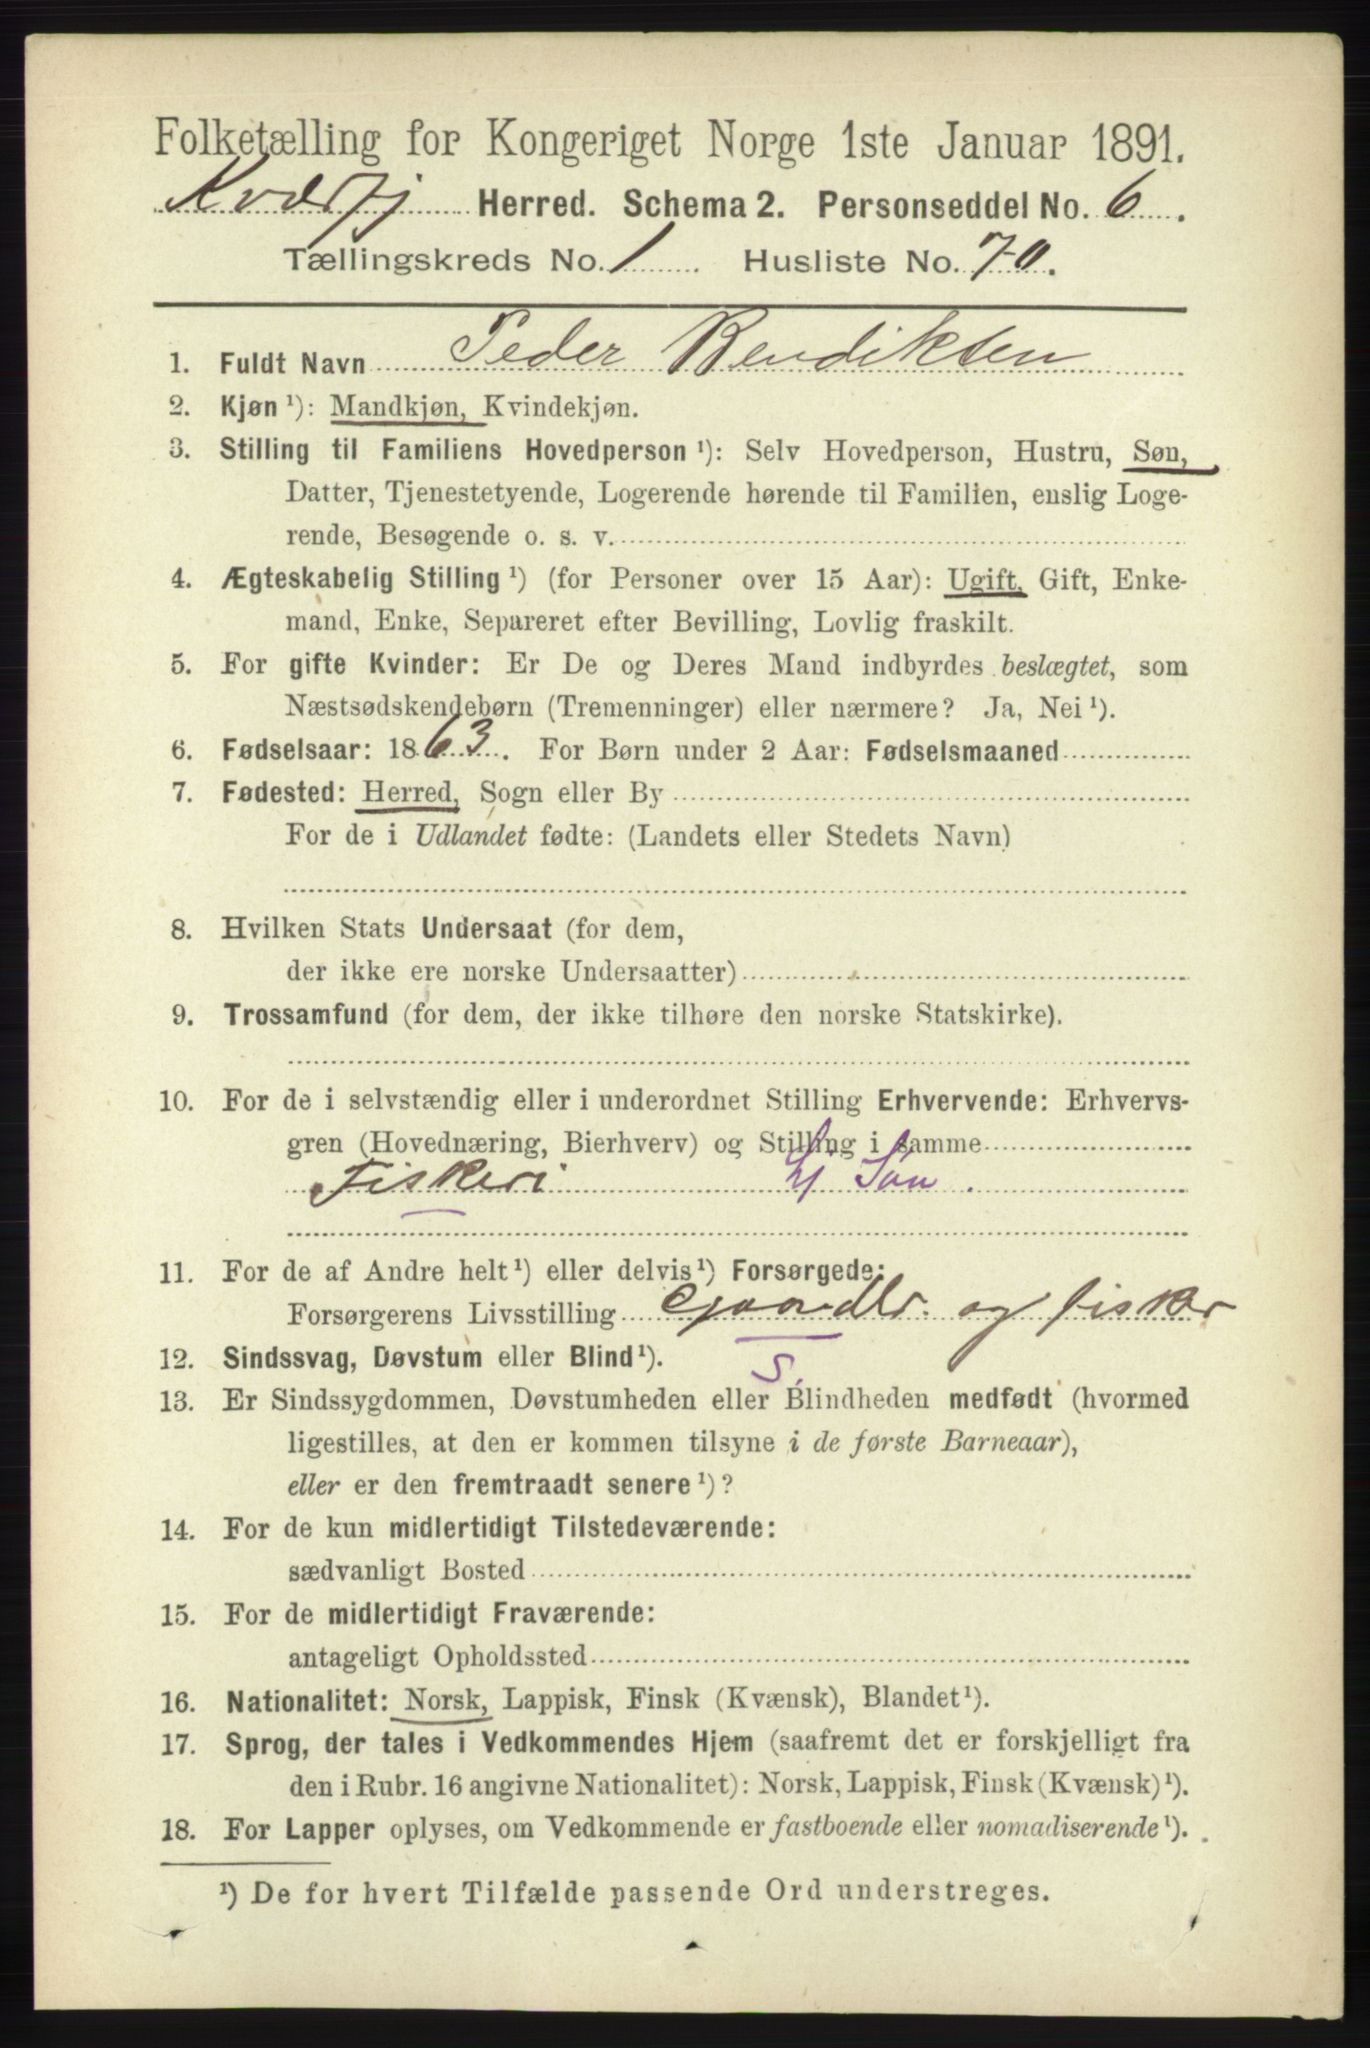 Folketælling for Kongeriget Norge 1ste Januar 1891.
Kværfj Herred. Schema 2. Personseddel No. 6.
Tællingskreds No. 1. Husliste No. 70.
1. Fuldt Navn Peder Bendiksen
2. Kjøn ¹): Mandkjøn, Kvindekjøn.
3. Stilling til Familiens Hovedperson ¹): Selv Hovedperson, Hustru, Søn,
Datter, Tjenestetyende, Logerende hørende til Familien, enslig Loge-
rende, Besøgende o. s. v.
4. Ægteskabelig Stilling ¹) (for Personer over 15 Aar): Ugift, Gift, Enke-
mand, Enke, Separeret efter Bevilling, Lovlig fraskilt.
5. For gifte Kvinder: Er De og Deres Mand indbyrdes beslægtet, som
Næstsødskendebørn (Tremenninger) eller nærmere? Ja, Nei ¹).
6. Fødselsaar: 1863. For Børn under 2 Aar: Fødselsmaaned
7. Fødested: Herred, Sogn eller By
For de i Udlandet fødte: (Landets eller Stedets Navn)
8. Hvilken Stats Undersaat (for dem,
der ikke ere norske Undersaatter)
9. Trossamfund (for dem, der ikke tilhøre den norske Statskirke).
10. For de i selvstændig eller i underordnet Stilling Erhvervende: Erhvervs-
gren (Hovednæring, Bierhverv) og Stilling i samme
Fiskeri Søn.
11. For de af Andre helt ¹) eller delvis ¹) Forsørgede:
Forsørgerens Livsstilling Gaardbr. og fisker
12. Sindssvag, Døvstum eller Blind ¹). S.
13. Er Sindssygdommen, Døvstumheden eller Blindheden medfødt (hvormed
ligestilles, at den er kommen tilsyne i de første Barneaar),
eller er den fremtraadt senere ¹)?
14. For de kun midlertidigt Tilstedeværende:
sædvanligt Bosted
15. For de midlertidigt Fraværende:
antageligt Opholdssted
16. Nationalitet: Norsk, Lappisk, Finsk (Kvænsk), Blandet ¹).
17. Sprog, der tales i Vedkommendes Hjem (saafremt det er forskjelligt fra
den i Rubr. 16 angivne Nationalitet): Norsk, Lappisk, Finsk (Kvænsk) ¹).
18. For Lapper oplyses, om Vedkommende er fastboende eller nomadiserende ¹).
¹) De for hvert Tilfælde passende Ord understreges.